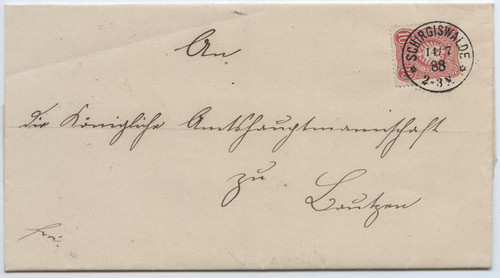 An
SCHIRGISWALDE
11 7
88
2-3N.
10
die Königliche Amtshauptmannschaft
zu
Bautzen
frei.